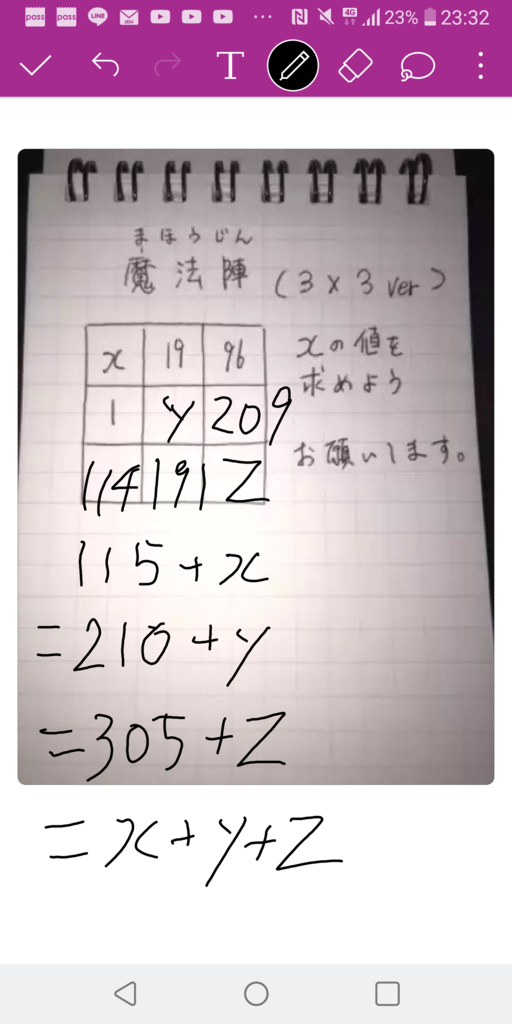 pass pass LINE ... 4G 23% 23:32
T
まほうじん
魔法陣 (3×3 ver)
x 19 96
1 y 209
114 191 Z
xの値を
求めよう
お願いします。
115+x
=210+y
=305+Z
=x+y+Z